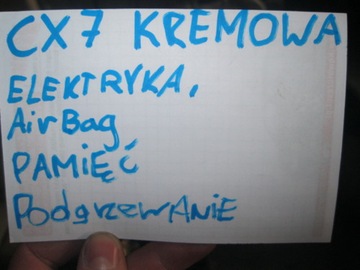 CX7 KREMOWA
ELEKTRYKA,
AirBag
PAMIĘĆ
PodgrzewANiE